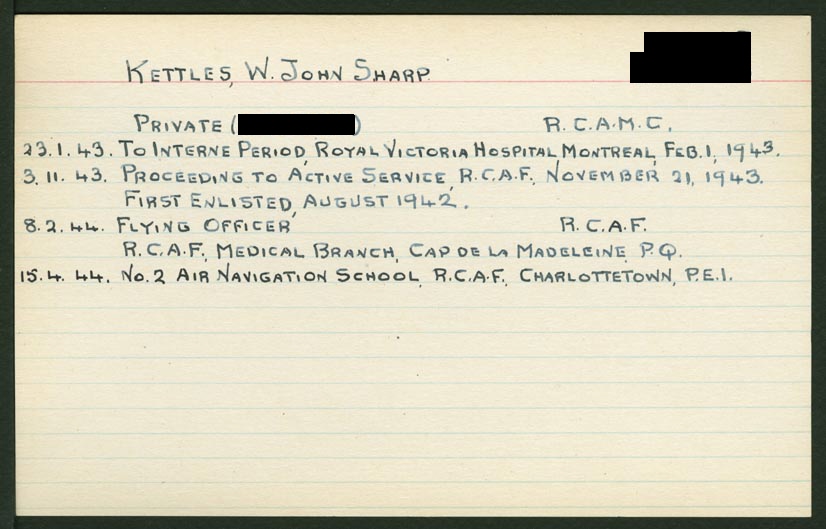 KETTLES, W. JOHN SHARP
PRIVATE ( ) R.C.A.M.C.
23.1.43. TO INTERNE PERIOD, ROYAL VICTORIA HOSPITAL, MONTREAL, FEB.1, 1943.
3.11.43. PROCEEDING TO ACTIVE SERVICE, R.C.A.F., NOVEMBER 21, 1943.
FIRST ENLISTED, AUGUST 1942.
8.2.44. FLYING OFFICER R.C.A.F.
R.C.A.F. MEDICAL BRANCH, CAP DE LA MADELEINE, P.Q.
15.4.44. NO.2 AIR NAVIGATION SCHOOL, R.C.A.F., CHARLOTTETOWN, P.E.I.